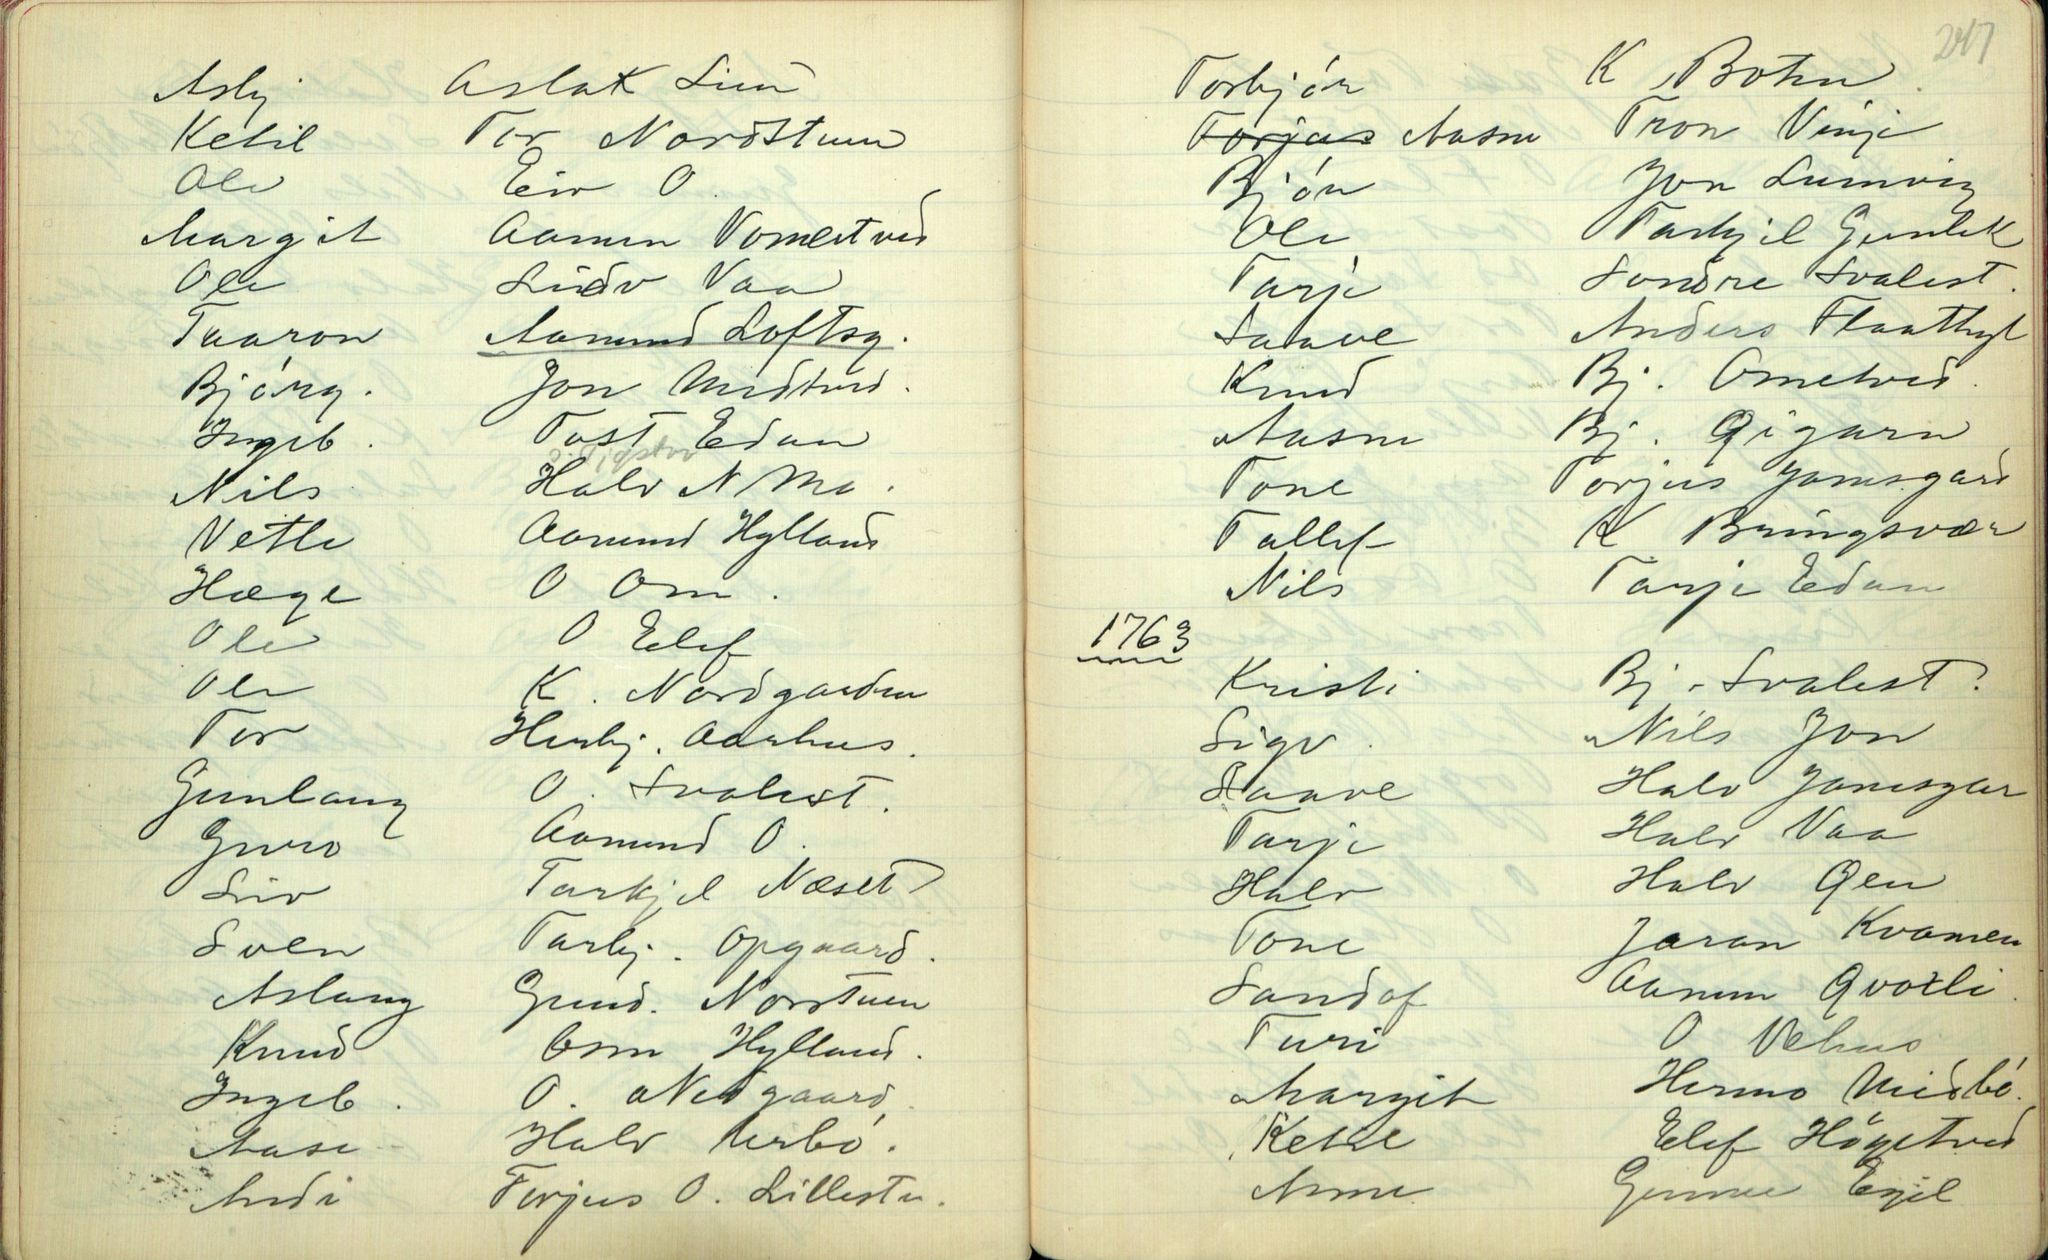 Asbj Aslak Lien
Ketil Tor Nordstuen
Ole Eiv O.
Margit Aamun Vometved
Ole Lidv Vaa
Taaron Aamund Loftsg.
Bjørg. Jon Midtved.
Ingeb. Tost Edan
Nils Halv N Mo.
Vetle Aamund Hylland
Hæge O Om.
Ole O Elef
Ole K. Nordgarden
Tor Herbj. Aarhus.
Gunlaug O. Svalest.
Guro Aamund O.
Liv Tarkjel Næset
Sven Tarbj. Opgaard.
Aslaug Gund. Norstuen
Knud Osm Hylland.
Ingeb. O. Nedgaard.
Aase Halv Urbø.
Andi Torjus O. Lillestu.
247
Torbjør K Botn.
Torjus Aasne Tron Vinje
Bjøn Jon Lumvig
Ole Tarkjel Gunlek
Tarje Sondre Svalest.
Saave Anders Flaathyl
Knud Bj. Ometved.
Aasne Bj. Qigarn
Tone Torjus Jamsgard
Tallef K Bringsvær
Nils Tarje Edan
1763
Kristi Bj. Svalest?
Sigv. Nils Jon
Saave Halv Jamsgar
Tarje Halv Vaa
Halv Halv Qen
Tone Jaran Kvamen
Sandof Aamun Qvaali.
Turi O Vehus
Margit Hermo Midbø.
Ketil Elef Høgetved
Anne Gunne Egil